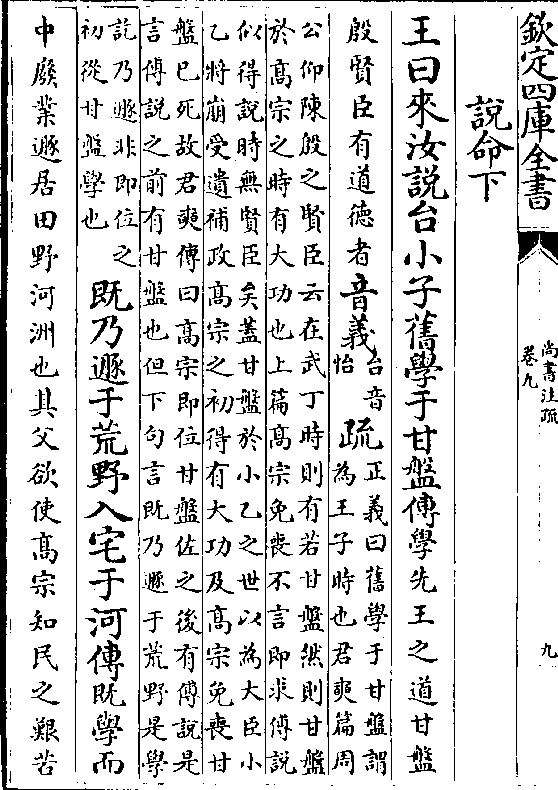 欽定四庫全書
尚書注疏
卷九
九
說命下
王曰來汝說台小子舊學于甘盤傳學先王之道甘盤
殷賢臣有道德者音義台音
怡
疏正義曰舊學于甘盤謂
為王子時也君奭篇周
公仰陳殷之賢臣云在武丁時則有若甘盤然則甘盤
於髙宗之時有大功也上篇髙宗免喪不言即求傅說
似得說時無賢臣矣葢甘盤於小乙之世以為大臣小
乙將崩受遺補政髙宗之初得有大功及髙宗免喪甘
盤已死故君奭傳曰髙宗即位甘盤佐之後有傅說是
言傅說之前有甘盤也但下句言既乃遯于荒野是學
訖乃遯非即位之
初從甘盤學也
既乃遯于荒野入宅于河傳既學而
中廢業遯居田野河洲也其父欲使髙宗知民之艱苦